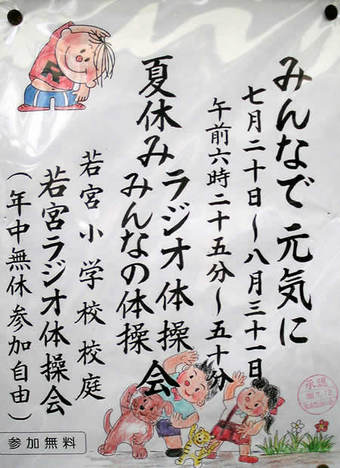 みんなで元気に
七月二十日〜八月三十一日
午前六時二十五分〜五十分
夏休みラジオ体操会
みんなの体操
若宮小学校校庭
若宮ラジオ体操会
（年中無休参加自由）
参加無料